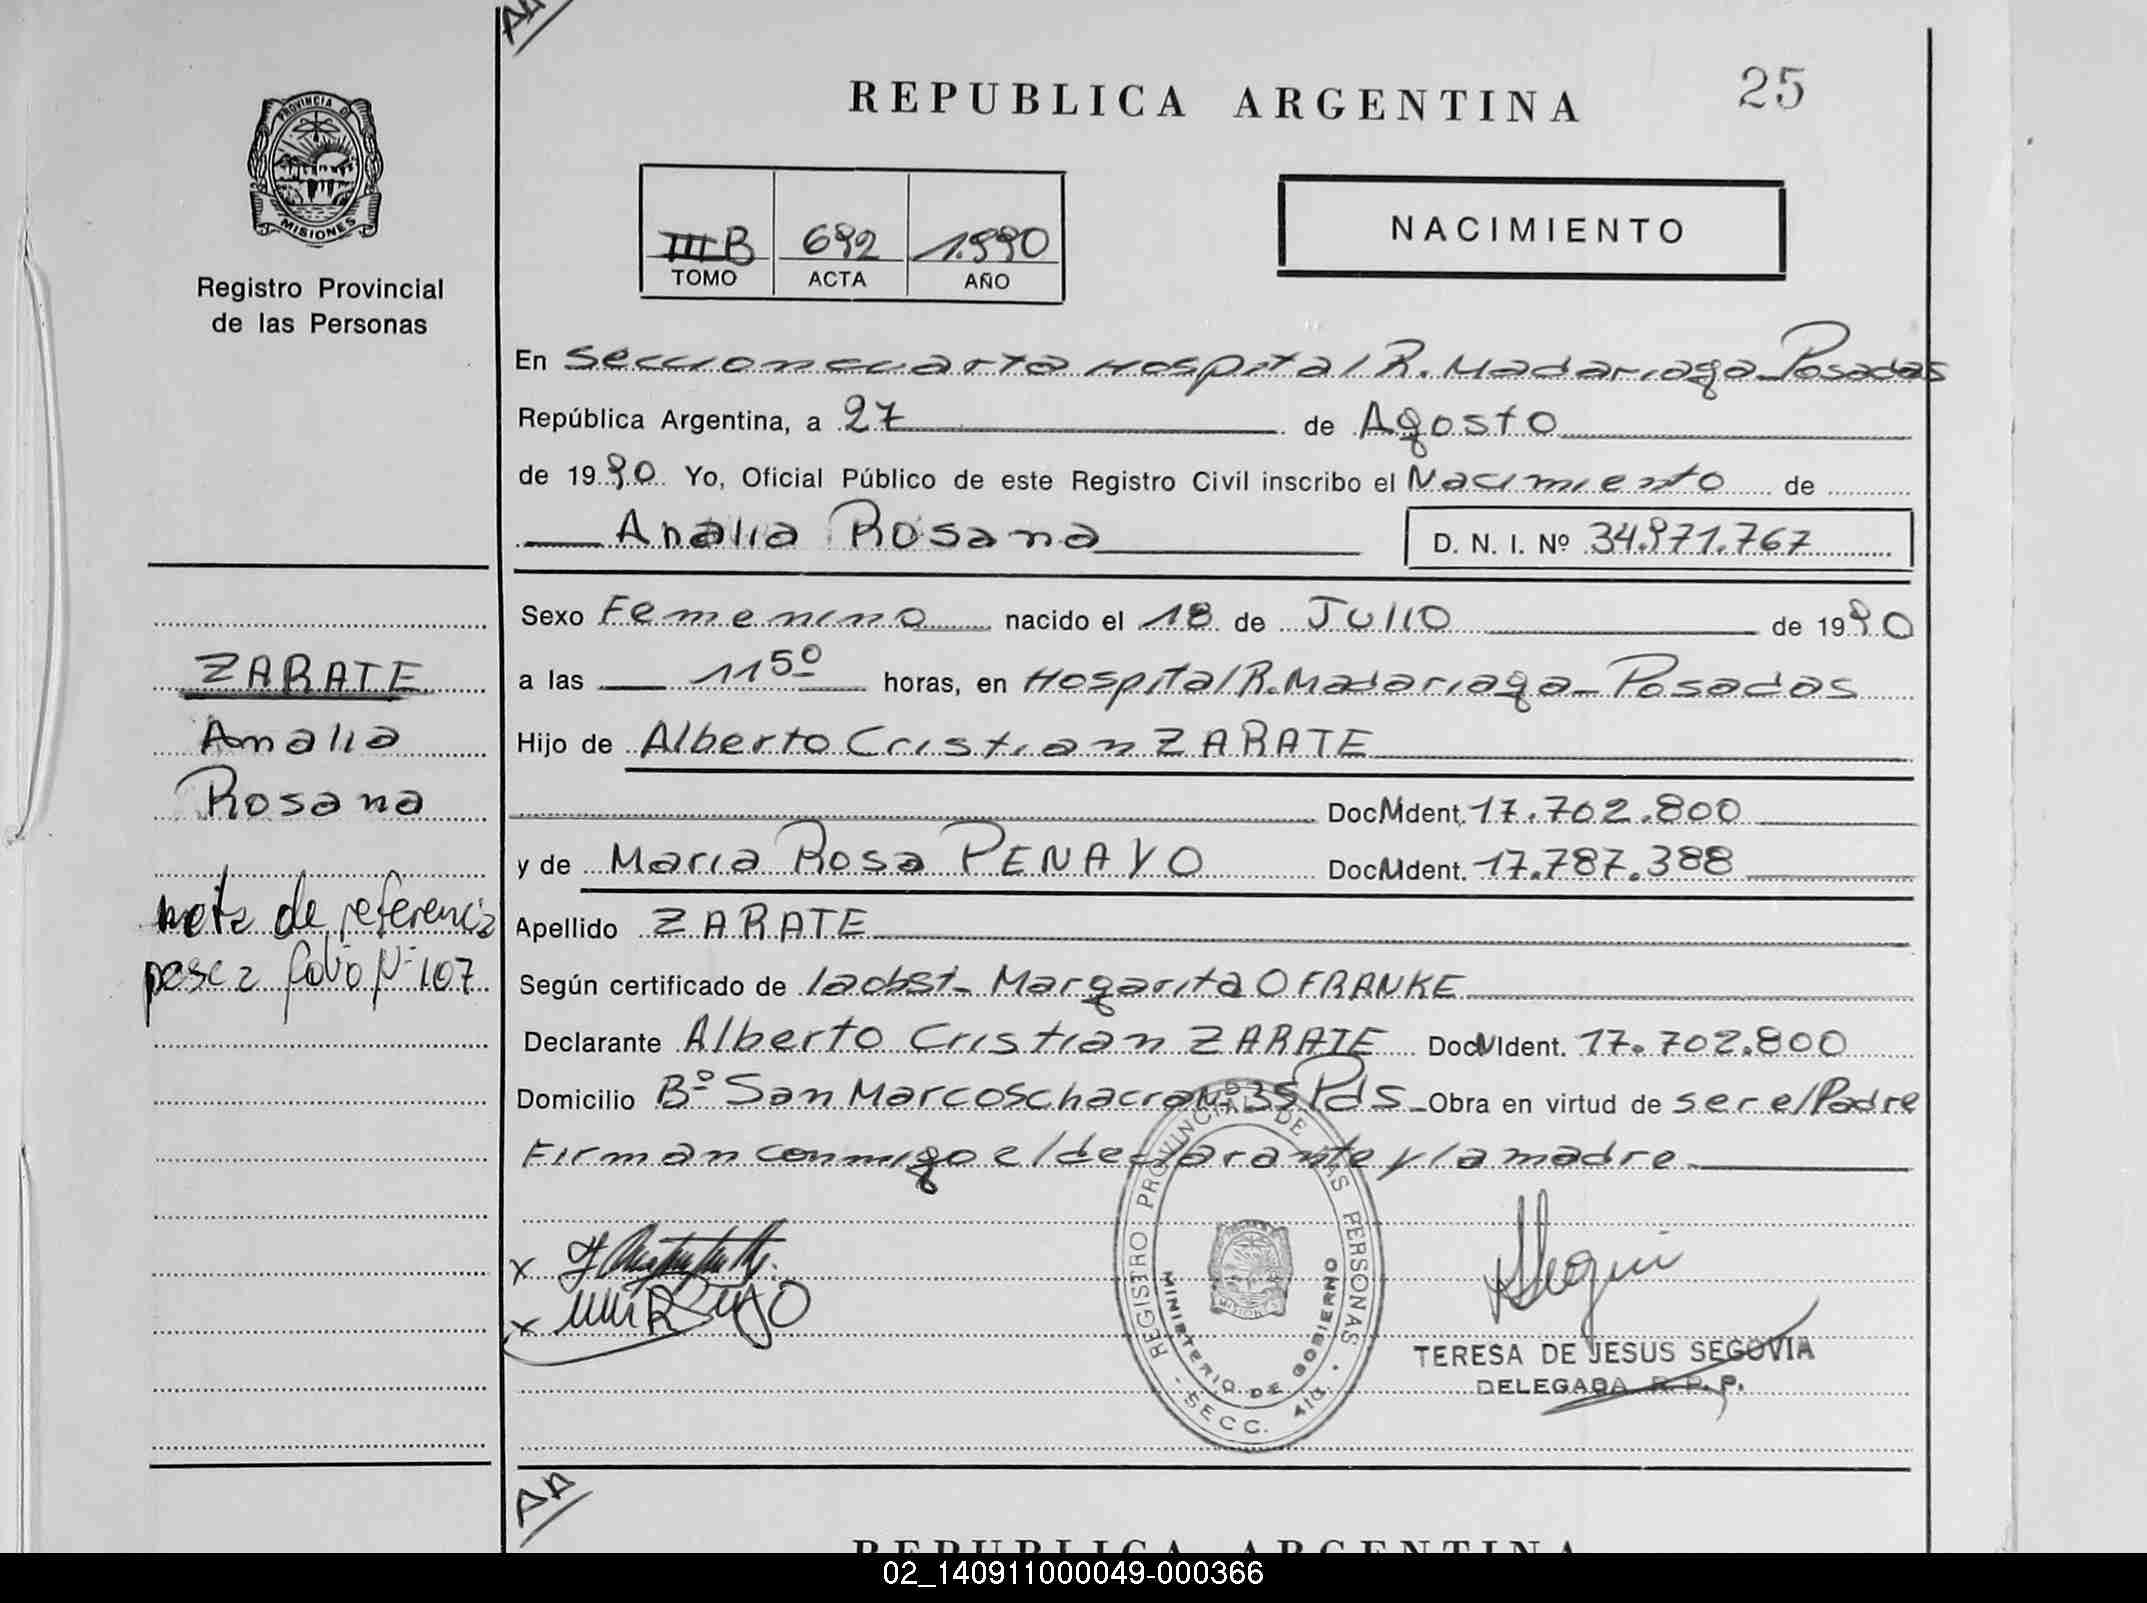 AA
REPUBLICA ARGENTINA
25
PROVINCIA DE
MISIONES
Registro Provincial
de las Personas
III B 692 1.990
TOMO ACTA AÑO
NACIMIENTO
En Seccion cuarta Hospital R. Madariaga_Posadas
República Argentina, a 27 de Agosto
de 1990 Yo, Oficial Público de este Registro Civil inscribo el Nacimiento de
Analia Rosana D. N. I. Nº 34.971.767
Sexo Femenino nacido el 18 de Julio de 1990
a las 11 50 horas, en Hospital R. Madariaga_ Posadas
Hijo de Alberto Cristian ZARATE
Doc M Ident. 17.702.800
y de Maria Rosa PENAYO Doc M Ident. 17.787.388
Apellido ZARATE
Según certificado de la obst_ Margarita O FRANKE
Declarante Alberto Cristian ZARATE Doc N Ident. 17.702.800
Domicilio Bº San Marcos chacra Nº 35 Pds_ Obra en virtud de ser el Padre
Firman conmigo el declarante y la madre
ZARATE
Analia
Rosana
nota de referencia
pase a folio Nº 107
REGISTRO PROVINCIAL DE LAS PERSONAS
MINISTERIO DE GOBIERNO
MISIONES
SECC. 4ta.
x
x
TERESA DE JESUS SEGOVIA
DELEGADA R. P. P.
AA
REPUBLICA ARGENTINA
02_140911000049-000366